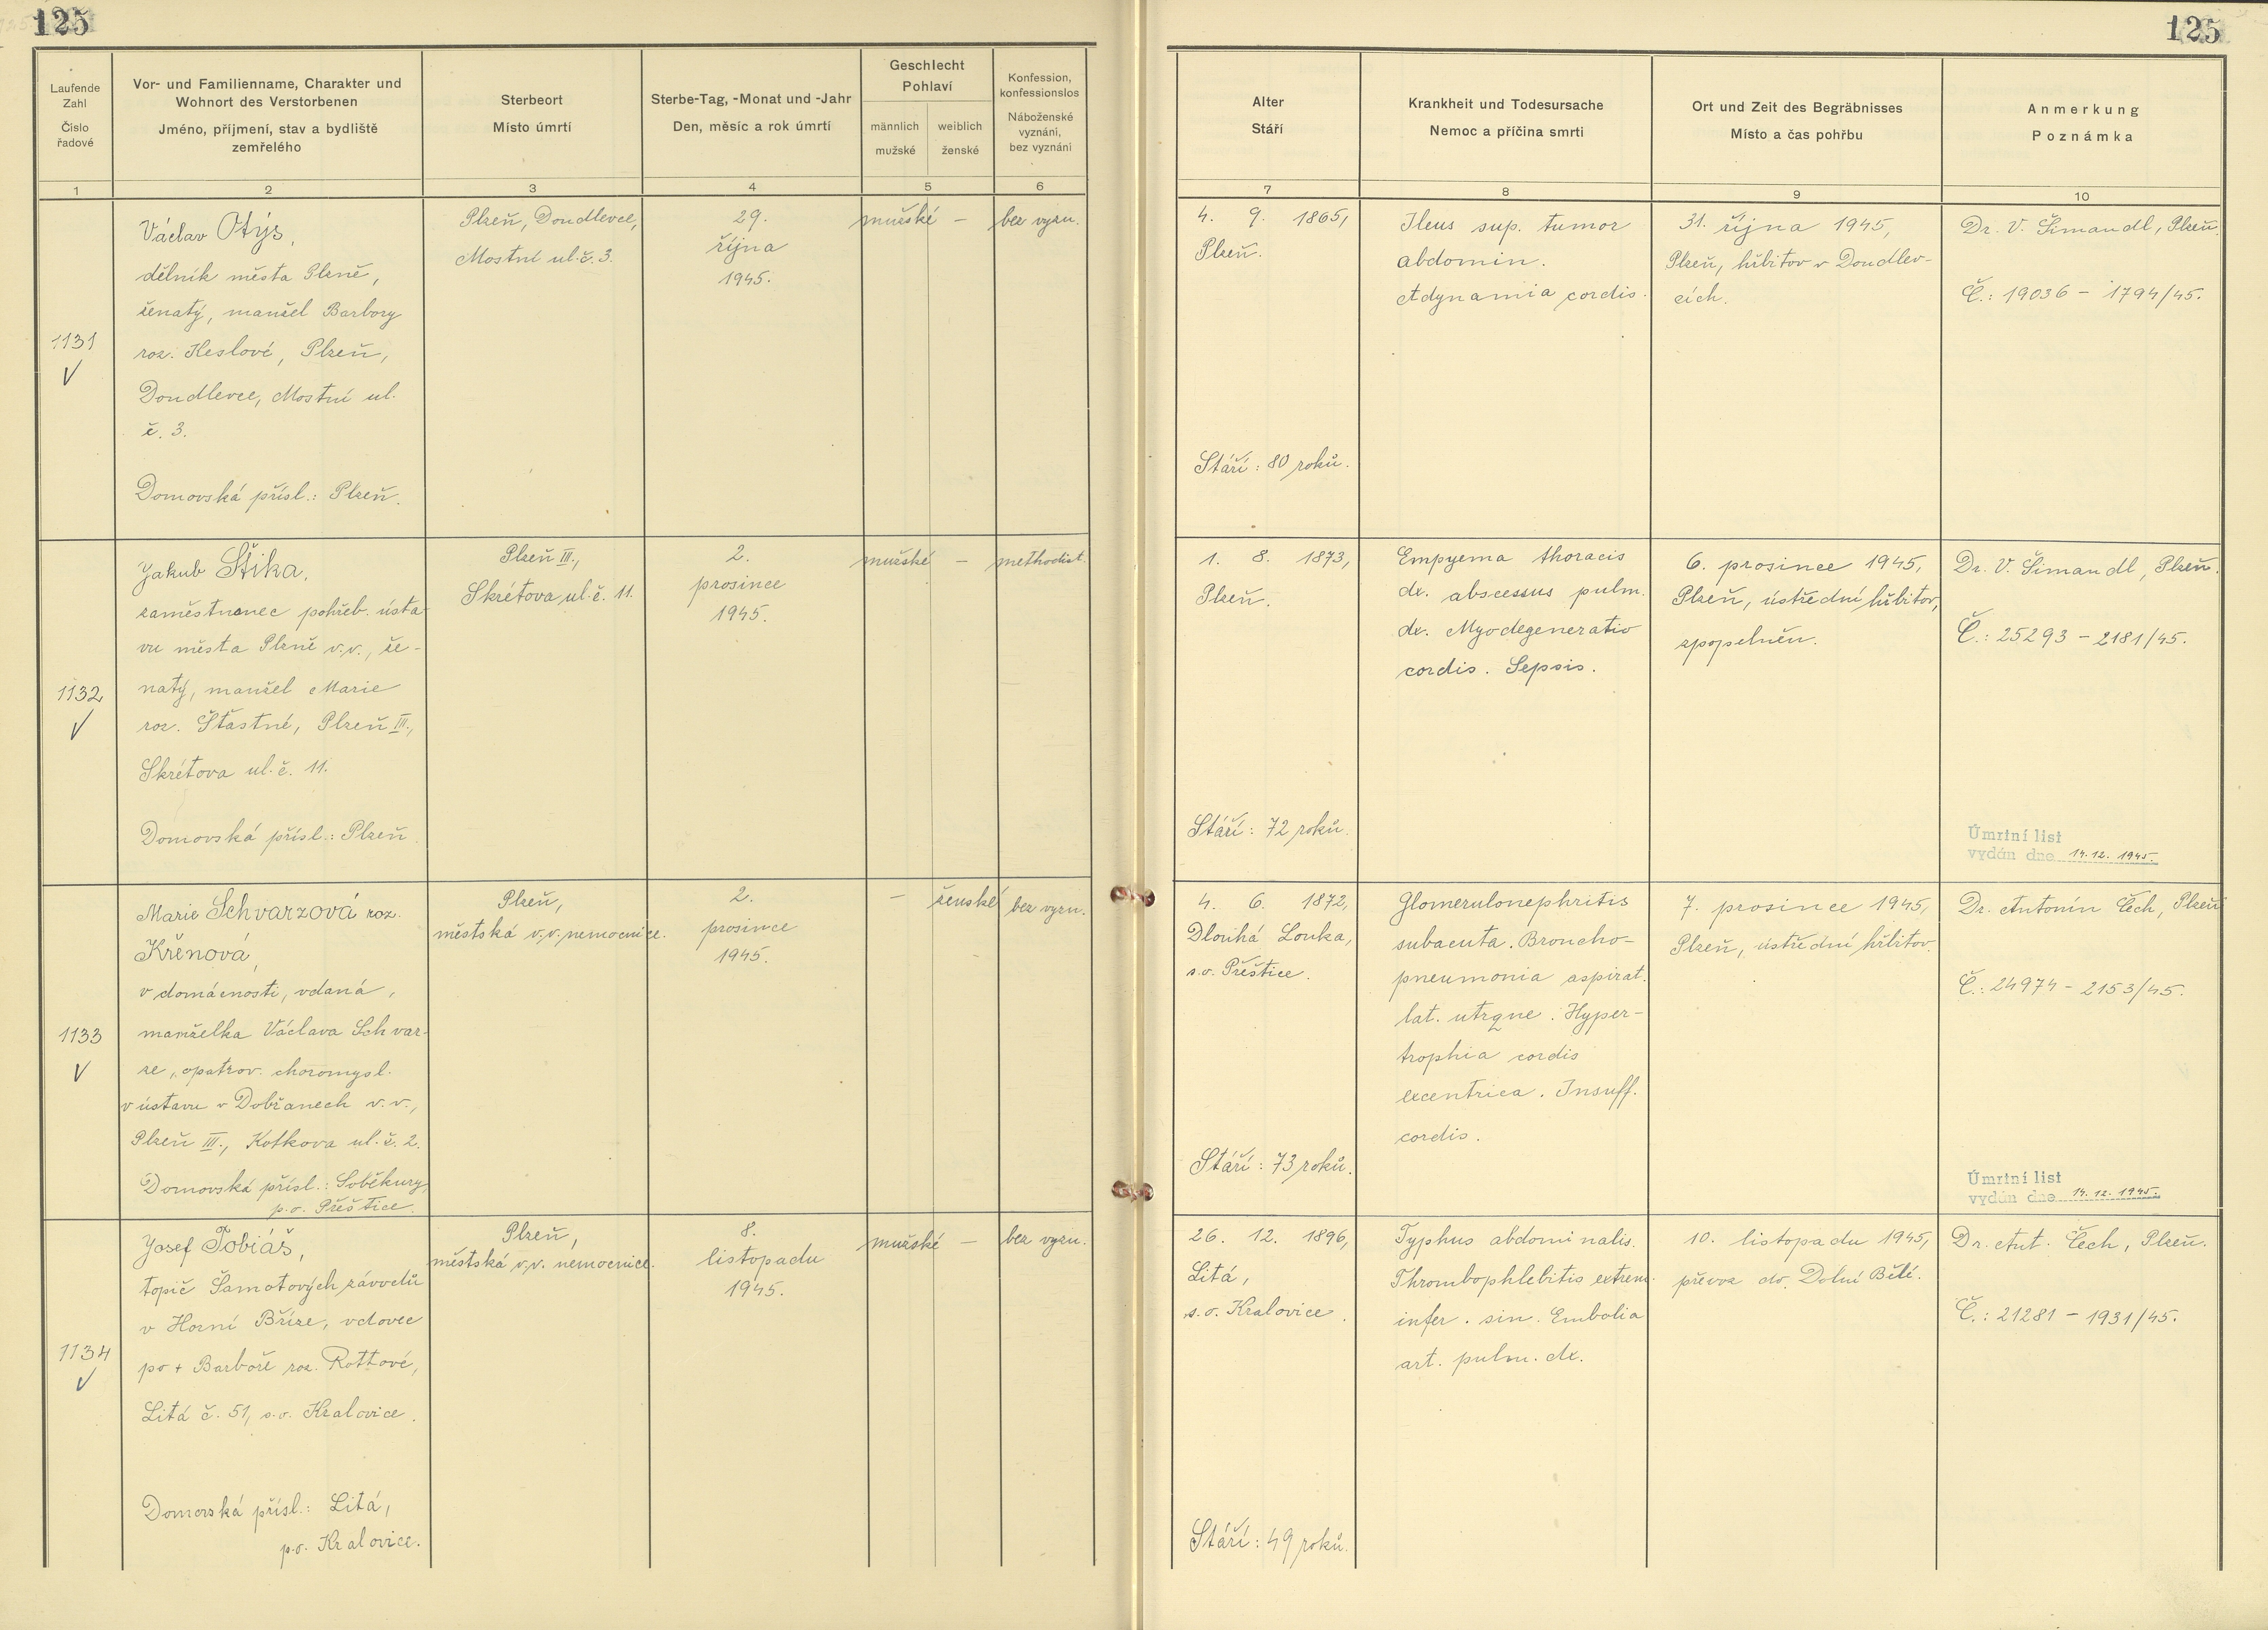 125
125
Laufende
Zahl
Číslo
řadové
Vor- und Familienname, Charakter und
Wohnort des Verstorbenen
Jméno, příjmení, stav a bydliště
zemřelého
Sterbeort
Místo úmrtí
Sterbe-Tag, -Monat und -Jahr
Den, měsíc a rok úmrtí
Geschlecht
Pohlaví
männlich
mužské
weiblich
ženské
Konfession,
konfessionslos
Náboženské
vyznání,
bez vyznání
Alter
Stáří
Krankheit und Todesursache
Nemoc a příčina smrti
Ort und Zeit des Begräbnisses
Místo a čas pohřbu
Anmerkung
Poznámka
1 2 3 4 5 6 7 8 9 10
1131
Václav Otýs,
dělník města Plzně,
ženatý, manžel Barbory
roz. Keslové, Plzeň,
Doudlevce, Mostní ul.
č. 3.
Domovská přísl.: Plzeň.
Plzeň, Doudlevce,
Mostní ul. č. 3.
29.
října
1945.
mužské –
bez vyzn.
4. 9. 1865,
Plzeň.
Stáří: 80 roků.
Ileus sup. tumor
abdomin.
Adynamia cordis.
31. října 1945,
Plzeň, hřbitov v Doudlev-
cích.
Dr. V. Šimandl, Plzeň.
Č.: 19036 – 1794/45.
1132
Jakub Štika,
zaměstnanec pohřeb. ústa-
vu města Plzně v.v., že-
natý, manžel Marie
roz. Šťastné, Plzeň III.,
Skrétova ul. č. 11.
Domovská přísl.: Plzeň.
Plzeň III.,
Skrétova ul. č. 11.
2.
prosince
1945.
mužské –
methodist.
1. 8. 1873,
Plzeň.
Stáří: 72 roků.
Empyema thoracis
dx. abscessus pulm.
dx. Myodegeneratio
cordis. Sepsis.
6. prosince 1945,
Plzeň, ústřední hřbitov,
zpopelněn.
Dr. V. Šimandl, Plzeň.
Č.: 25293 – 2181/45.
Úmrtní list
vydán dne 14.12. 1945.
1133
Marie Schvarzová roz.
Křenová,
v domácnosti, vdaná,
manželka Václava Schvar-
ze, opatrov. choromysl.
v ústavu v Dobřanech v.v.,
Plzeň III., Kotkova ul. č. 2.
Domovská přísl.: Soběkury,
p.o. Přeštice.
Plzeň,
městská v.v. nemocnice.
2.
prosince
1945.
– ženské
bez vyzn.
4. 6. 1872,
Dlouhá Louka,
s.o. Přeštice.
Stáří: 73 roků.
Glomerulonephritis
subacuta. Broncho-
pneumonia aspirat.
lat. utrque. Hyper-
trophia cordis
excentrica. Insuff.
cordis.
7. prosince 1945,
Plzeň, ústřední hřbitov.
Dr. Antonín Čech, Plzeň
Č.: 24974 – 2153/45.
Úmrtní list
vydán dne 14.12. 1945.
1134
Josef Tobiáš,
topič Šamotových závodů
v Horní Bříze, vdovec
po + Barboře roz. Rottové,
Litá č. 51, s.o. Kralovice.
Domovská přísl.: Litá,
p.o. Kralovice.
Plzeň,
městská v.v. nemocnice.
8.
listopadu
1945.
mužské –
bez vyzn.
26. 12. 1896,
Litá,
s.o. Kralovice.
Stáří: 49 roků.
Typhus abdominalis.
Thrombophlebitis extrem.
infer. sin. Embolia
art. pulm. dx.
10. listopadu 1945,
převoz do Dolní Bělé.
Dr. Ant. Čech, Plzeň.
Č.: 21281 – 1931/45.